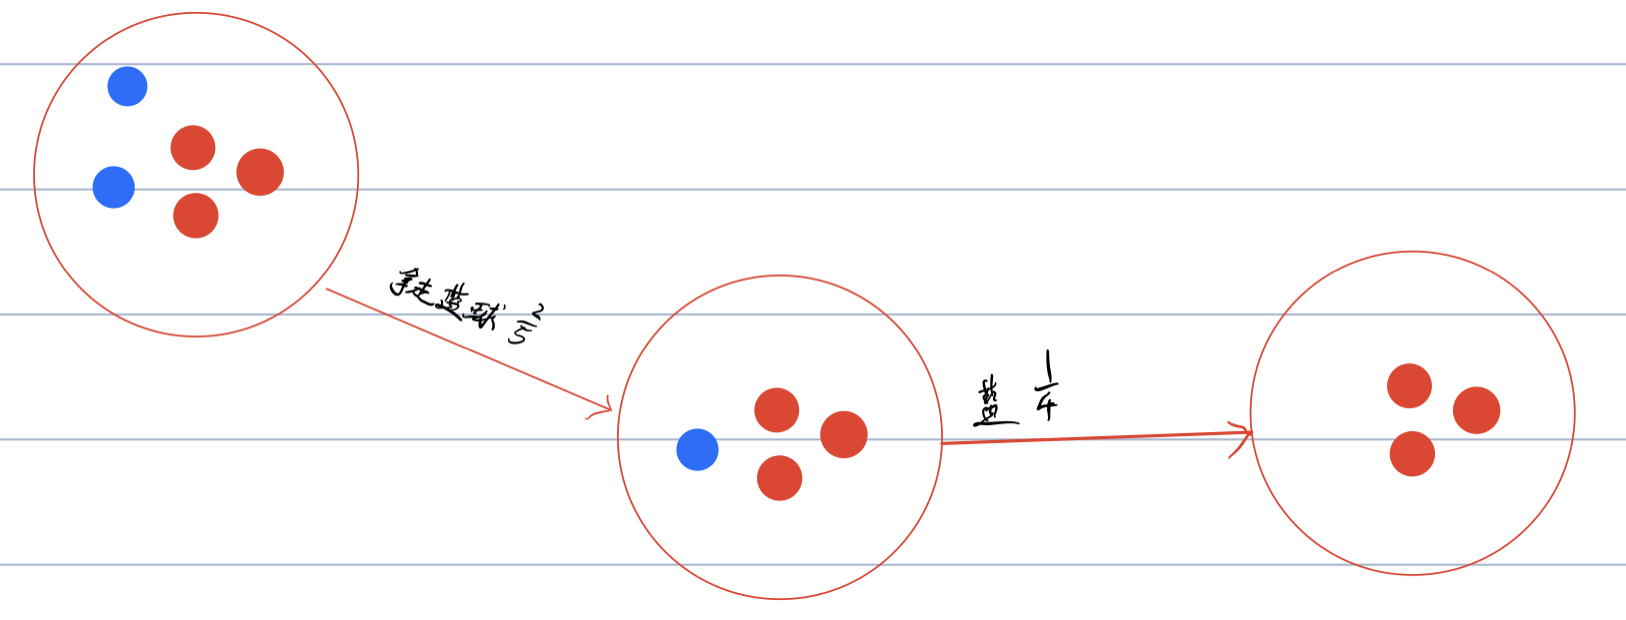 拿走蓝球 2/5
蓝 1/4